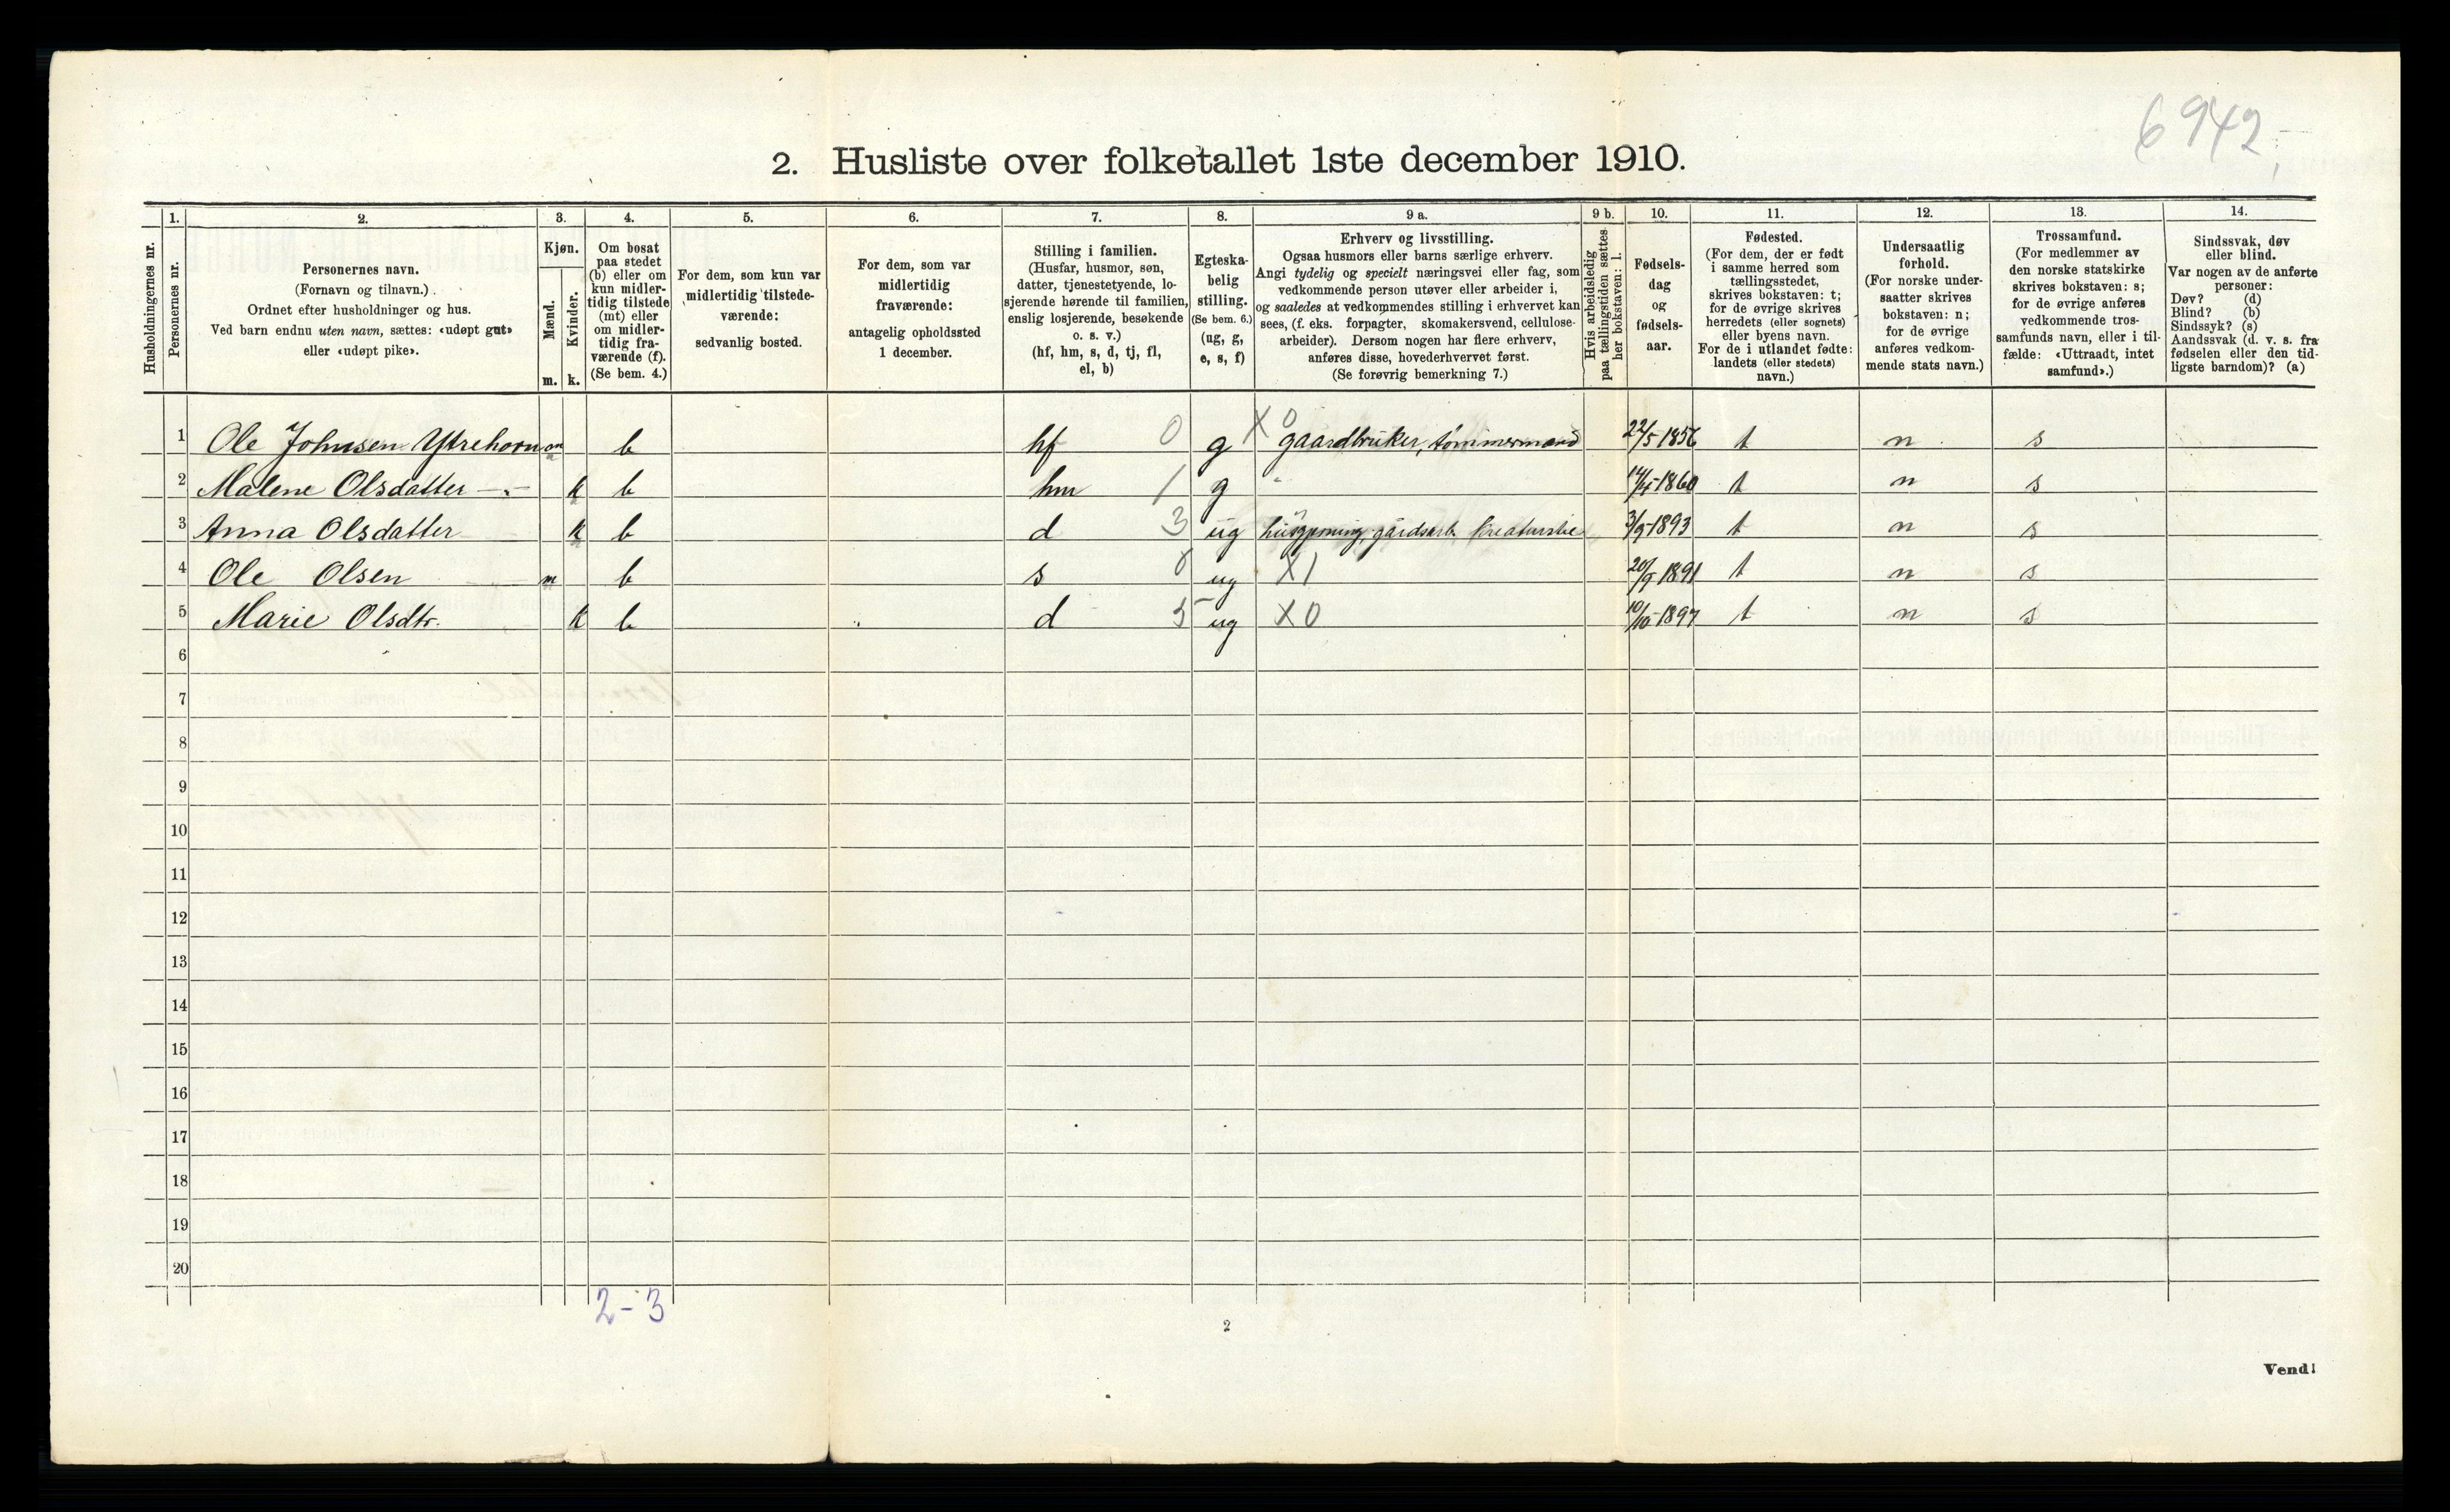 6942
2. Husliste over folketallet 1ste december 1910.
1. 2. 3. 4. 5. 6. 7. 8. 9 a. 9 b. 10. 11. 12. 13. 14.
Husholdningernes nr.
Personernes nr.
Personernes navn.
(Fornavn og tilnavn.)
Ordnet efter husholdninger og hus.
Ved barn endnu uten navn, sættes: «udøpt gut»
eller «udøpt pike».
Kjøn.
Mænd.
Kvinder.
m. k.
Om bosat
paa stedet
(b) eller om
kun midler-
tidig tilstede
(mt) eller
om midler-
tidig fra-
værende (f).
(Se bem. 4.)
For dem, som kun var
midlertidig tilstede-
værende:
sedvanlig bosted.
For dem, som var
midlertidig
fraværende:
antagelig opholdssted
1 december.
Stilling i familien.
(Husfar, husmor, søn,
datter, tjenestetyende, lo-
sjerende hørende til familien,
enslig losjerende, besøkende
o. s. v.)
(hf, hm, s, d, tj, fl,
el, b)
Egteska-
belig
stilling.
(Se bem. 6.)
(ug, g,
e, s, f)
Erhverv og livsstilling.
Ogsaa husmors eller barns særlige erhverv.
Angi tydelig og specielt næringsvei eller fag, som
vedkommende person utøver eller arbeider i,
og saaledes at vedkommendes stilling i erhvervet kan
sees, (f. eks. forpagter, skomakersvend, cellulose-
arbeider). Dersom nogen har flere erhverv,
anføres disse, hovederhvervet først.
(Se forøvrig bemerkning 7.)
Hvis arbeidsledig
paa tællingstiden sættes
her bokstaven: l.
Fødsels-
dag
og
fødsels-
aar.
Fødested.
(For dem, der er født
i samme herred som
tællingsstedet,
skrives bokstaven: t;
for de øvrige skrives
herredets (eller sognets)
eller byens navn.
For de i utlandet fødte:
landets (eller stedets)
navn.)
Undersaatlig
forhold.
(For norske under-
saatter skrives
bokstaven: n;
for de øvrige
anføres vedkom-
mende stats navn.)
Trossamfund.
(For medlemmer av
den norske statskirke
skrives bokstaven: s;
for de øvrige anføres
vedkommende tros-
samfunds navn, eller i til-
fælde: «Uttraadt, intet
samfund».)
Sindssvak, døv
eller blind.
Var nogen av de anførte
personer:
Døv? (d)
Blind? (b)
Sindssyk? (s)
Aandssvak (d. v. s. fra
fødselen eller den tid-
ligste barndom)? (a)
1 Ole Johnsen Ytrehorn m b hf 0 g X 0 gaardbruker, tømmermand 22/5 1856 t n s
2 Malene Olsdatter —„— k b hm 1 g 14/4-1860 t n s
3 Anna Olsdatter k b d 3 ug 3/9-1893 t n s
4 Ole Olsen m b s ug X 1 20/9 1891 t n s
5 Marie Olsdtr. k b d 3 ug X 0 10/10-1897 t n s
6
7
8
9
10
11
12
13
14
15
16
17
18
19
20
2 - 3
2
Vend!